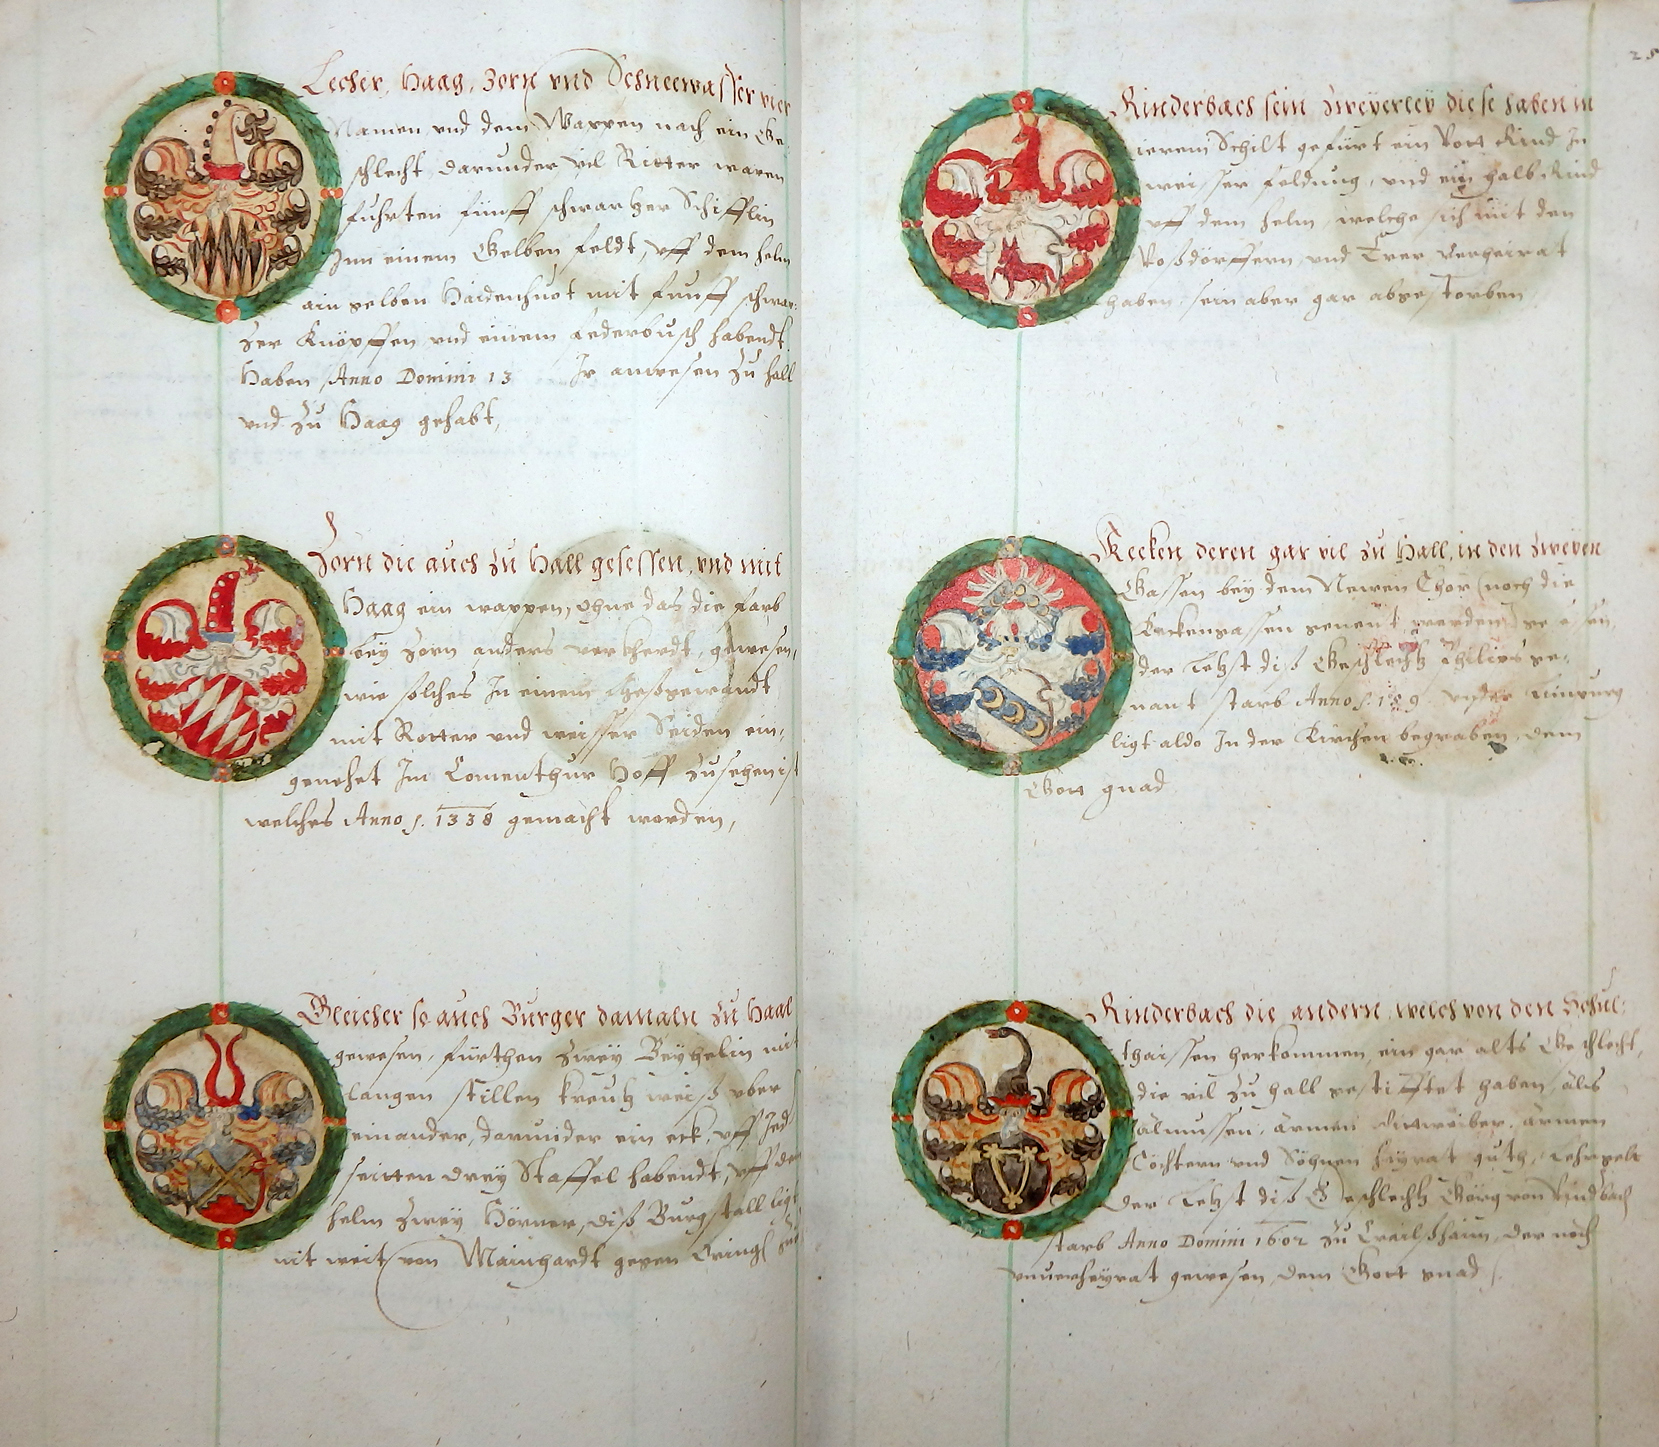 Lecher, Haag, Zorn vnd Schneewasser vier
Namen vnd dem Wappen nach ein Ge-
schlecht, darunder vil Ritter waren
fuhrten fünff schwartzer Schifflin
Inn einem Gelben feldt, vff dem helm
ain gelben Haidenhuot mit funff schwar-
zer Knöpffen vnd einem federbusch habendt.
Haben Anno Domini 13 Ir anwesen zu hall
vnd zu Haag gehabt,
Zorn die auch zu Hall gesessen, vnd mit
Haag ein wappen, ohne das die farb
bey Zorn anders verkherdt, gewesen,
wie solches In einem Meßgewandt
mit Rotter vnd weisser Seiden ein-
genehet Im Comenthur Hoff zusehen ist
welches Anno 1338 gemacht worden,
Gleicher so auch Burger damaln zu Haal
gewesen, fürthen zwey Beyhelin mit
langen stillen kreutz weiß vber
einander, darunder ein eck, vff Jed
seitten drey Staffel habendt, vff dem
helm zwey Hörner, diß Burgstall ligt
nit weit von Mainhardt gegen
25
Rinderbach sein zweyerley diese haben in
ierem Schilt gefürt ein Rott Rind In
weisser feldung, vnd ein halb Rind
vff dem helm, welche sich mit den
Roßdörffern vnd Trer verheirat
haben, sein aber gar abgestorben
Kecken deren gar vil zu Hall, in den zweyen
Gassen bey dem Newen Thor (noch die
Keckengassen genent werden)
der letzst diß Geschlechtz Philips ge-
nant starb Anno
ligt aldo In der Kirchen begraben, dem
Gott gnad
Rinderbach die andern, welch von den Schul-
thaissen herkommen, ein gar alts Geschlecht,
die vil zu hall gestifftet haben, als
almussen, armen armen
Töchtern vnd Söhnen heyrat guth, lehrgelt
Der letzst diß Geschlechtz Görg von Rindbach
starb Anno Domini 1602 zu Crailßhaim, der noch
vnuerheyrat gewesen, dem Gott gnad